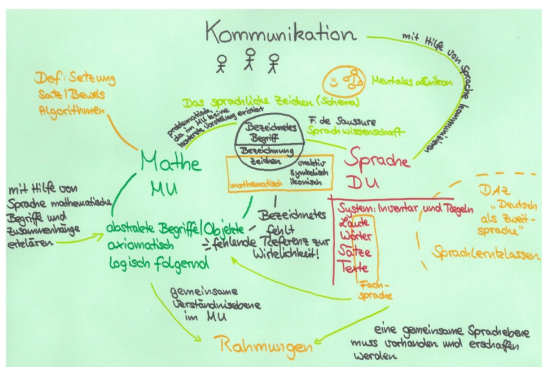 Kommunikation
mit Hilfe von Sprache kommunizieren
Def: Setzung
Satz/Beweis
Algorithmen
Mentales
Das sprachliche Zeichen (Schema)
F. de Saussure
Sprachwissenschaft
problematisch,
da im MU keine
Vorstellung existiert
Bezeichnetes
Begriff
Bezeichnung
Zeichen
mathematisch
symbolisch
ikonisch
Mathe
MU
Sprache
DU
mit Hilfe von
Sprache mathematische
Begriffe und
Zusammenhänge
erklären
abstrakte Begriffe/Objekte
axiomatisch
logisch folgernd
Bezeichnetes
fehlt
fehlende Referenz zur
Wirklichkeit!
System: Inventar und Regeln
Laute
Wörter
Sätze
Texte
Fach-
sprache
DAZ
"Deutsch
als Zweit-
sprache"
Sprachlernklassen
gemeinsame
Verständnisebene
im MU
Rahmungen
eine gemeinsame Sprachebene
muss vorhanden und erschaffen
werden